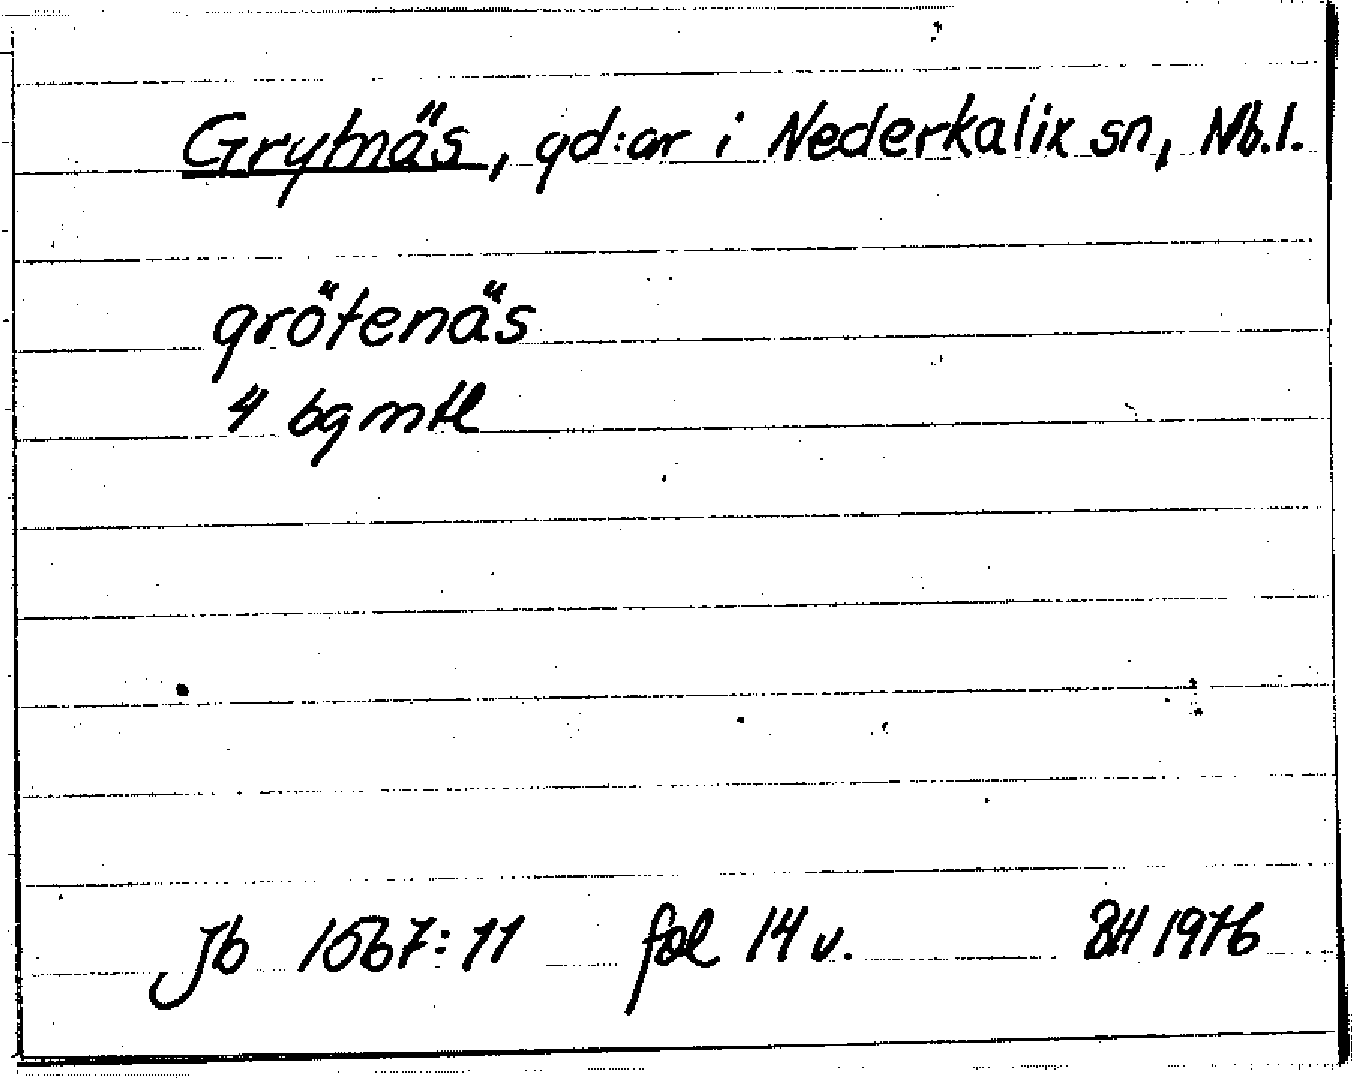 Grytnäs, gd:ar i Nederkalix sn, Nb.l.
grötenäs
4 bg mtl
Jb 1567:11 fol 14 v. BH 1976